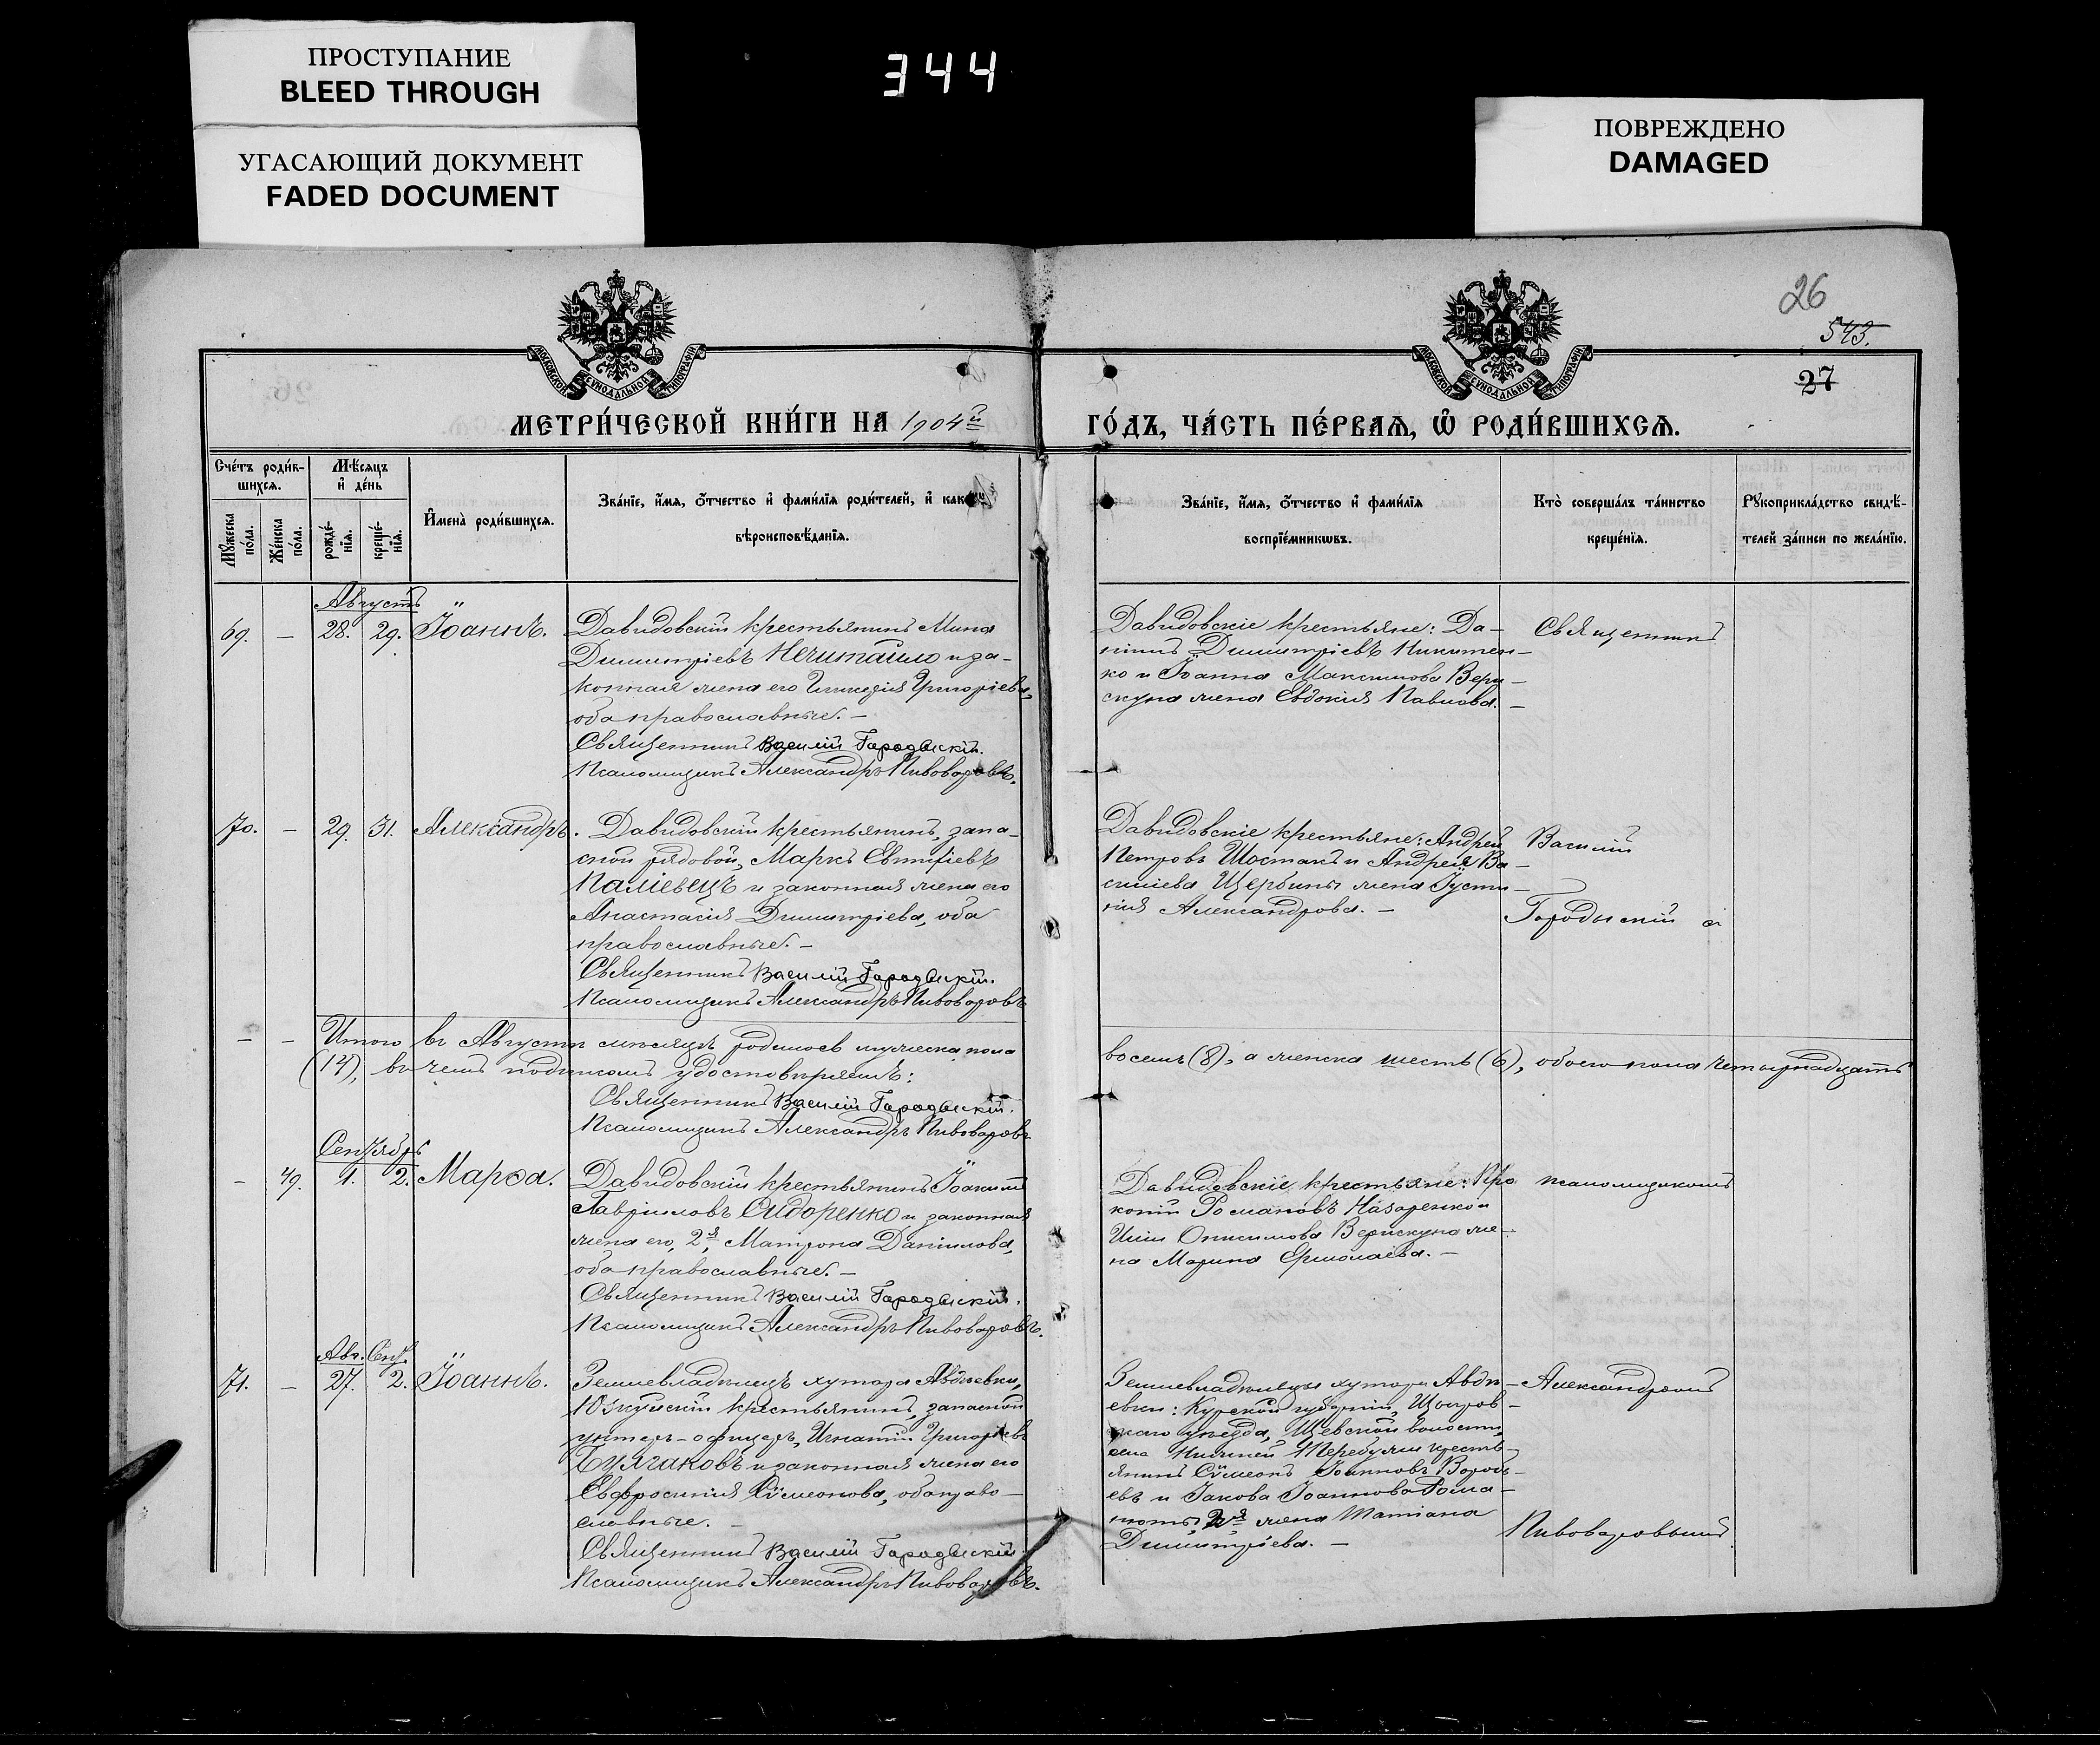 ПРОСТУПАНИЕ
BLEED THROUGH
УГАСАЮЩИЙ ДОКУМЕНТ
FADED DOCUMENT
344
ПОВРЕЖДЕНО
DAMAGED
26
543.
27
МОСКОВСКОЙ СѴНОДАЛЬНОЙ ТИПОГРАФІИ
МОСКОВСКОЙ СѴНОДАЛЬНОЙ ТИПОГРАФІИ
МЕТРИ́ЧЕСКОЙ КНИ́ГИ НА 1904й
ГО́ДЪ, ЧА́СТЬ ПЕ́РВАѦ, Ѡ РОДИ́ВШИХСѦ.
Сче́тъ роди́в-
шихся.
Мꙋжеска по́ла.
Же́нска по́ла.
Мѣ́сяцъ
и҆ де́нь
рожде́-
нїя.
креще́-
нїя.
И҆мена̀ роди́вшихся.
Зва́нїе, и҆́мя, ѻ҆́тчество и҆ фами́лїя роди́телей, и҆
вѣроисповѣ́данїя.
Зва́нїе, и҆́мя, ѻ҆́тчество и҆ фами́лїя
воспрїе́мникѡвъ.
Кто̀ соверша́лъ та́инство
креще́нїя.
Рꙋкоприкла́дство свидѣ́-
телей за́писи по жела́нїю.
Августъ
69. – 28. 29. Іоаннъ.
Давидовскій крестьянинъ Мина
Димитріевъ Нечитайло и за-
конная жена его Григоріева,
оба православные. –
Священникъ Василій Городыскій.
Псаломщикъ Александръ Пивоваровъ.
Давидовскіе крестьяне: Да-
ніилъ Димитріевъ Никитен-
ко и Іоанна Максимова Вери-
скуна жена Евдокія Павлова. –
Священникъ
70. – 29. 31. Александръ.
Давидовскій крестьянинъ, запа-
сной рядовой, Маркъ Евтихіевъ
Паліевецъ и законная жена его
Анастасія Димитріева, оба
православные. –
Священникъ Василій Городыскій.
Псаломщикъ Александръ Пивоваровъ
Давидовскіе крестьяне: Андрей
Петровъ Шостакъ и Андрея Ва-
силіева Щербины жена Іусти-
нія Александрова. –
Василій
Городыскій съ
– – Итого въ Августѣ мѣсяцѣ родилось мужеска пола
восемь (8), а женска шесть (6), обоего пола четырнадцать
(14), въ чемъ подписомъ удостовѣряемъ:
Священникъ Василій Городыскій.
Псаломщикъ Александръ Пивоваровъ
Сентябрь
– 49. 1. 2. Марѳа.
Давидовскій крестьянинъ Іоакимъ
Гавріиловъ Сидоренко и законная
жена его, 2я, Матрона Даніилова,
оба православные. –
Священникъ Василій Городыскій.
Псаломщикъ Александръ Пивоваровъ.
Давидовскіе крестьяне: Про
копій Романовъ Назаренко и
Иліи Онисимова Верискуна же-
на Марина Ермолаева. –
псаломщикомъ
Авг. Сент.
71. – 27. 2. Іоаннъ.
Землевладѣлецъ хутора Авдѣевки,
крестьянинъ, запасной
унтеръ-офицеръ, Игнатій Григоріевъ
Булгаковъ и законная жена его
Евфросинія Сѵмеонова, оба право-
славные. –
Священникъ Василій Городыскій.
Псаломщикъ Александръ Пивоваровъ.
Землевладѣльцы хутора Авдѣ-
евки: Курской губерніи, Щигров-
скаго уѣзда, волости,
села Нижней кресть-
янинъ Сѵмеонъ Іоанновъ Воробь-
евъ и Іакова Іоаннова
2я жена Татіана
Димитріева. –
Александромъ
Пивоваровымъ